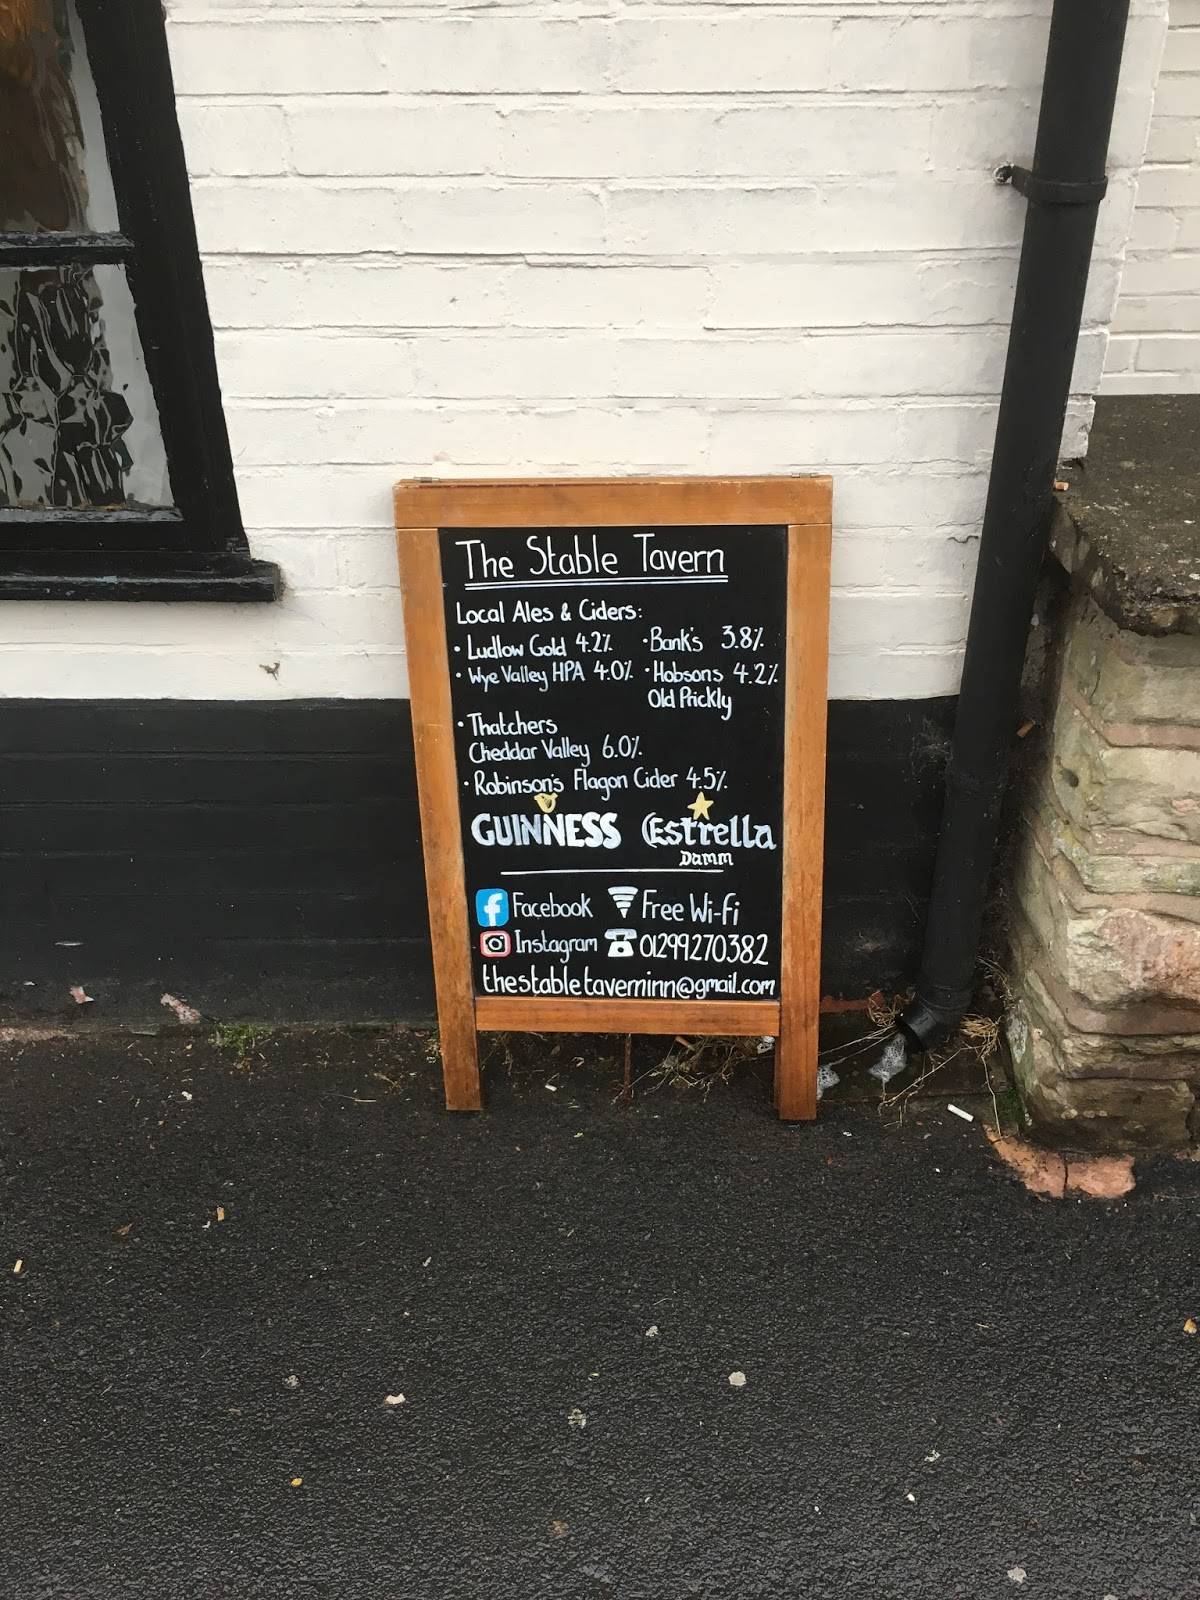 The Stable Tavern
Local Ales & Ciders:
• Ludlow Gold 4.2% • Bank's 3.8%
• Wye Valley HPA 4.0% • Hobsons 4.2%
Old Prickly
• Thatchers
Cheddar Valley 6.0%
• Robinson's Flagon Cider 4.5%
GUINNESS Estrella
Damm
f Facebook Free Wi-Fi
Instagram 01299270382
thestabletaverninn@gmail.com